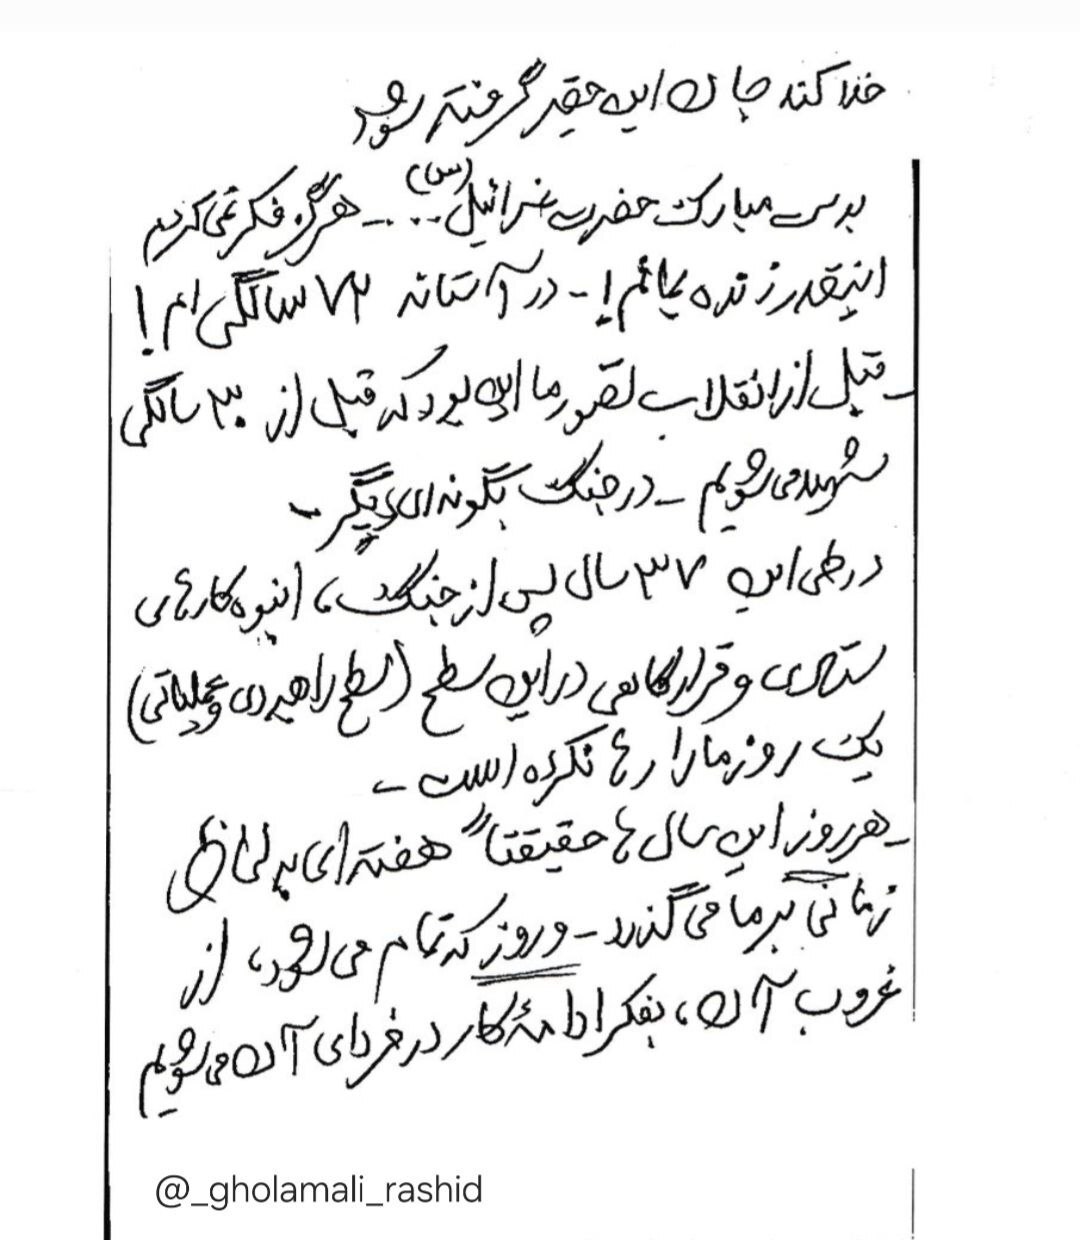 خدا کند جان این حقیر گرفته شود
بدست مبارک حضرت عزرائیل (س) ... - هرگز فکر نمی‌کردیم
اینقدر زنده بمانم! - در آستانه ۷۲ سالگی ام!
- قبل از انقلاب تصور ما این بود که قبل از ۳۰ سالگی
شهید می شویم - در جنگ بگونه ای دیگر -
در طی این ۳۷ سال پس از جنگ، انبوه کارهای
ستادی و قرارگاهی در این سطح (سطح راهبردی و عملیاتی)
یک روز ما را رها نکرده است -
- هر روز این سال ها حقیقتاً هفته ای به لحاظ
زمانی بر ما می گذرد - و روز که تمام می شود، از
غروب آن، بفکر ادامۀ کار در فردای آن می شویم
@_gholamali_rashid